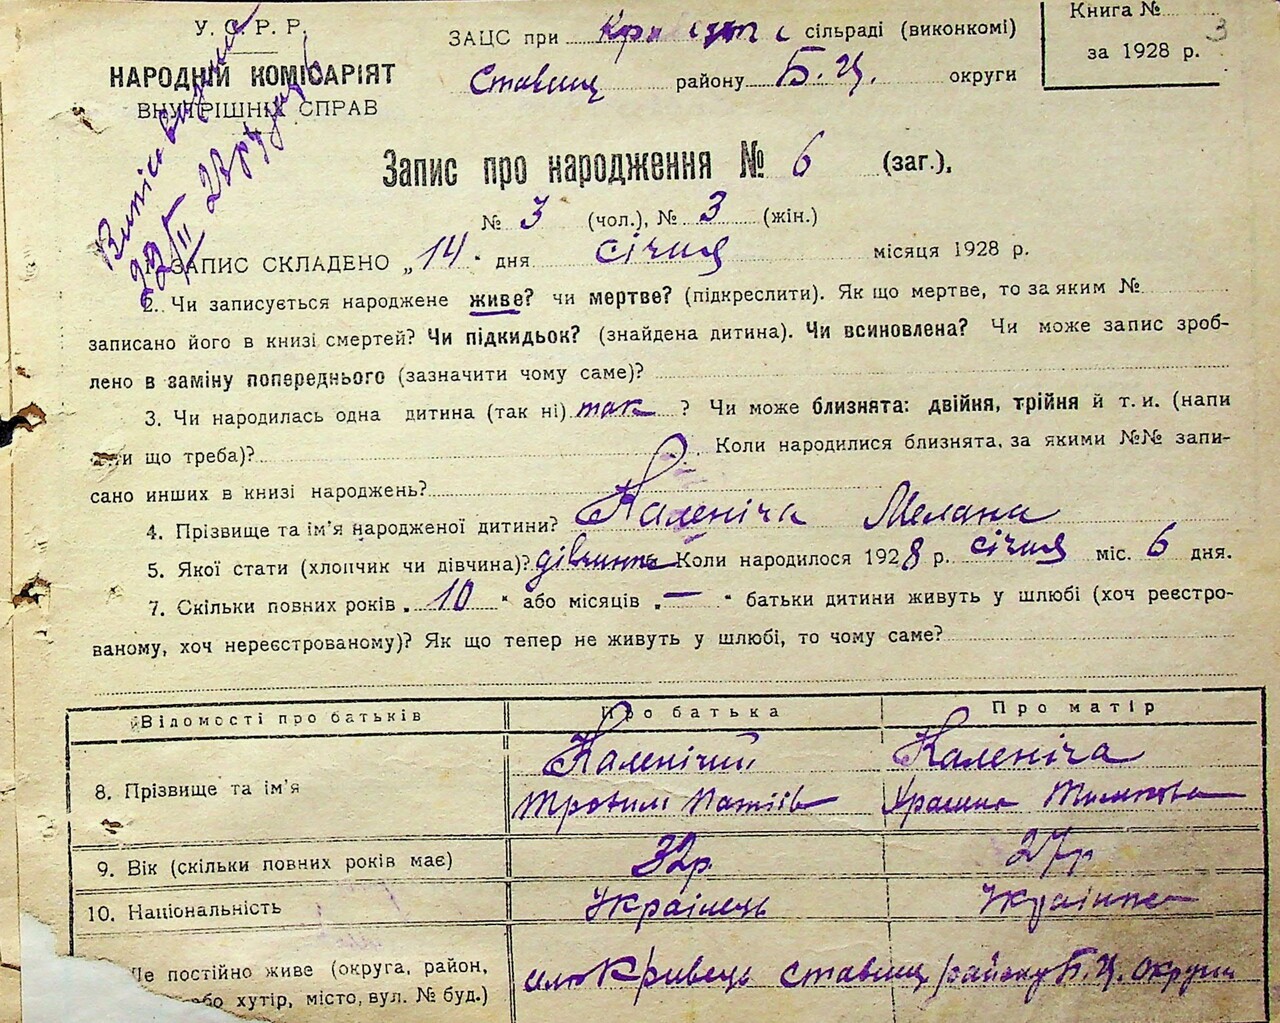 У. С. Р. Р.
НАРОДНІЙ КОМІСАРІЯТ
ВНУТРІШНІХ СПРАВ
ЗАЦС при сільраді (виконкомі)
Ставищ району Б. Ц. округи
Книга № 3
за 1928 р.
22/II 28 р
Запис про народження № 6 (заг.),
№ 3 (чол.), № 3 (жін.)
1. ЗАПИС СКЛАДЕНО „ 14 " дня січня місяця 1928 р.
2. Чи записується народжене живе? чи мертве? (підкреслити). Як що мертве, то за яким №
записано його в книзі смертей? Чи підкидьок? (знайдена дитина). Чи всиновлена? Чи може запис зроб-
лено в заміну попереднього (зазначити чому саме)?
3. Чи народилась одна дитина (так ні) так ? Чи може близнята: двійня, трійня й т. и. (напи
и що треба)? Коли народилися близнята, за якими №№ запи-
сано инших в книзі народжень?
4. Прізвище та ім'я народженої дитини? Каленіча Мелана
5. Якої стати (хлопчик чи дівчина)? дівчина Коли народилося 1928 р. січня міс. 6 дня.
7. Скільки повних років „ 10 " або місяців „ — " батьки дитини живуть у шлюбі (хоч реєстро-
ваному, хоч нереєстрованому)? Як що тепер не живуть у шлюбі, то чому саме?
Відомості про батьків Про батька Про матір
8. Прізвище та ім'я Каленічий Каленіча
9. Вік (скільки повних років має) 32р. 27р
10. Національність Українець Українка
Де постійно живе (округа, район, село Кривець Ставищ району Б. Ц. округи
або хутір, місто, вул. № буд.)